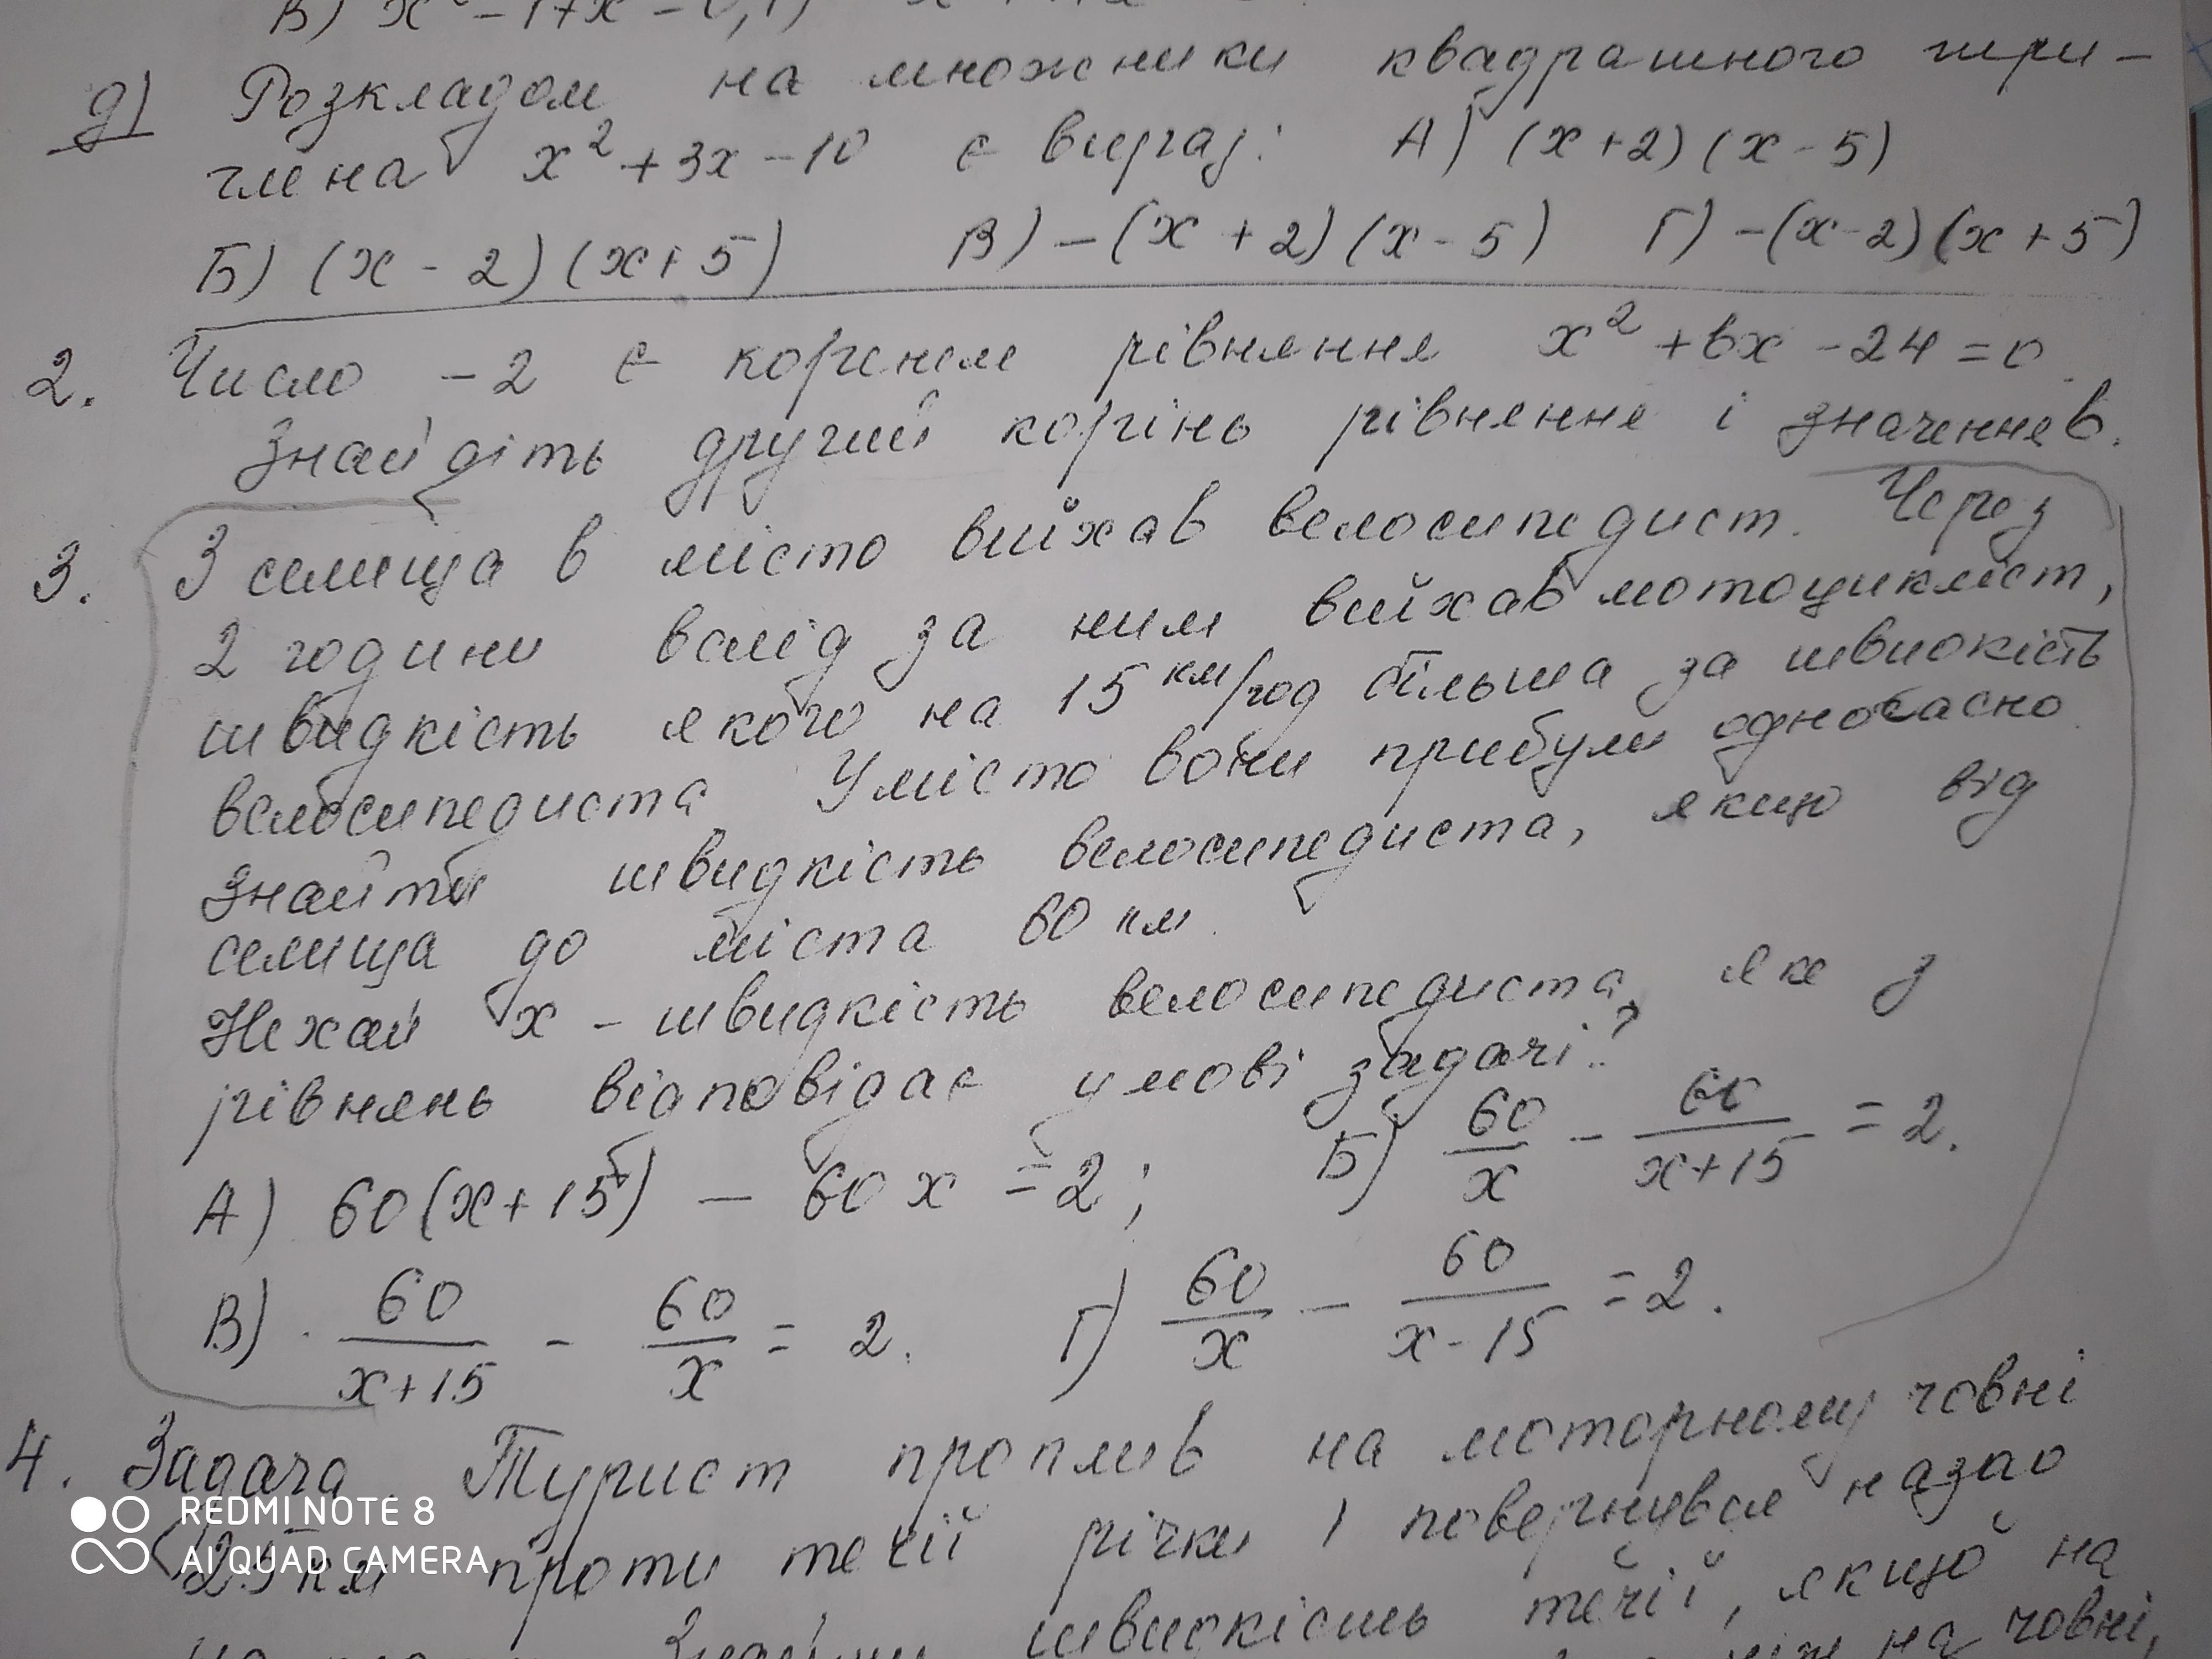 В) х² - 17х
д) Розкладом на множники квадратного три-
члена х² + 3х - 10 є вираз: А) (х + 2)(х - 5)
Б) (х - 2)(х + 5) В) - (х + 2)(х - 5) Г) - (х - 2)(х + 5)
2. Число - 2 є коренем рівняння х² + вх - 24 = 0.
Знайдіть другий корінь рівняння і значення в.
3. З селища в місто виїхав велосипедист. Через
2 години вслід за ним виїхав мотоцикліст,
швидкість якого на 15 км/год більша за швидкість
велосипедиста. У місто вони прибули одночасно.
Знайти швидкість велосипедиста, якщо від
селища до міста 60 км.
Нехай х - швидкість велосипедиста, яке з
рівнянь відповідає умові задачі?
А) 60(х + 15) - 60х = 2; Б) 60/х - 60/(х+15) = 2.
В) 60/(х+15) - 60/х = 2. Г) 60/х - 60/(х-15) = 2.
4. Задача. Турист проплив на моторному човні
25 км проти течії річки і повернувся назад
швидкість течії, якщо на
на човні,
REDMI NOTE 8
AI QUAD CAMERA